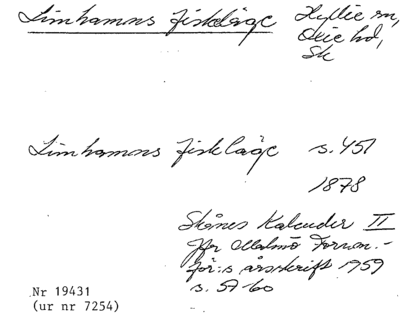 Limhamns fiskläge Hyllie sn,
Oxie hd,
Sk
Limhamns fiskläge s. 451
1878
Skånes Kalender II
Jfr Malmö Fornm.-
för:s årsskrift 1959
s. 57-60
Nr 19431
(ur nr 7254)